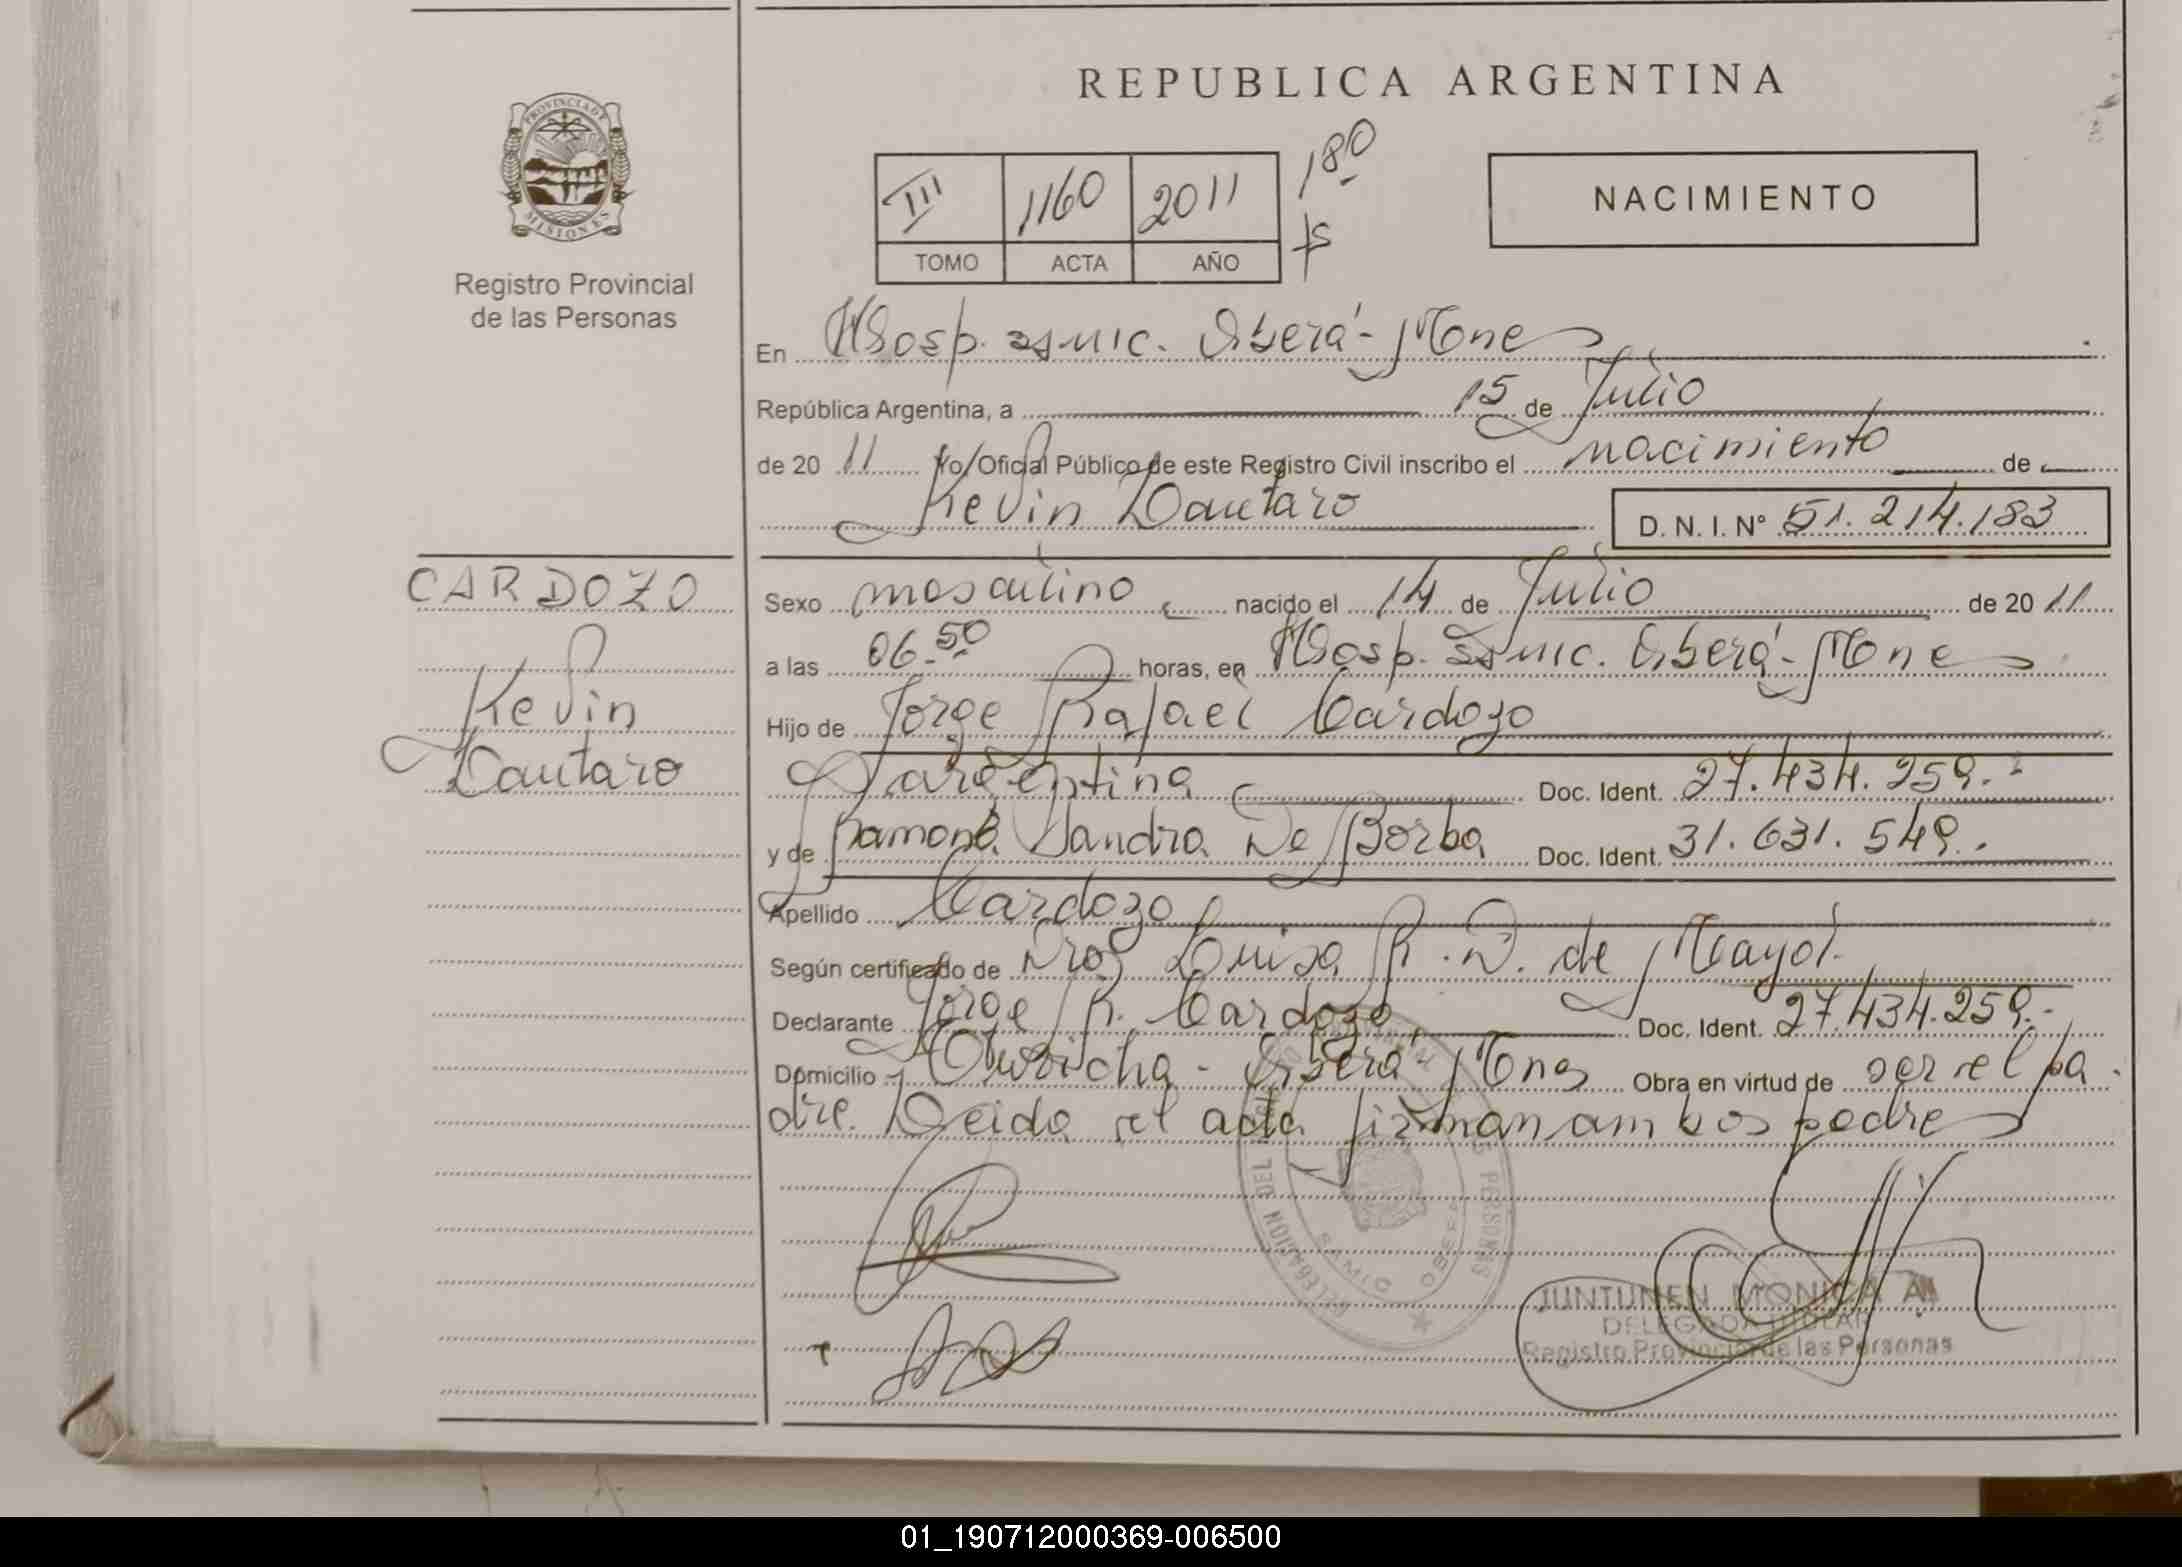 REPUBLICA ARGENTINA
PROVINCIA DE
MISIONES
Registro Provincial
de las Personas
III 1160 2011 180
TOMO ACTA AÑO fs
NACIMIENTO
En Hosp. Samic. Oberá - Mnes
República Argentina, a 15 de Julio
de 20 11 Yo/Oficial Público de este Registro Civil inscribo el nacimiento de
Kevin Lautaro D. N. I. N° 51.214.183
CARDOZO
Kevin
Lautaro
Sexo masculino nacido el 14 de Julio de 20 11
a las 06.50 horas, en Hosp. Samic. Oberá - Mnes
Hijo de Jorge Rafael Cardozo
argentina Doc. Ident. 27.434.259.-
y de Ramona Sandra De Borba Doc. Ident. 31.631.549.-
Apellido Cardozo
Según certificado de Dra. Luisa R. D. de Mayol.
Declarante Jorge R. Cardozo Doc. Ident. 27.434.259.-
Domicilio - Oberá Mnes Obra en virtud de ser el pa
dre. Leida el acta firman ambos padres
DELEGACION DEL PERSONAS
SAMIC OBERA
JUNTUNEN MONICA A.
DELEGADA TITULAR
Registro Provincial de las Personas
01_190712000369-006500